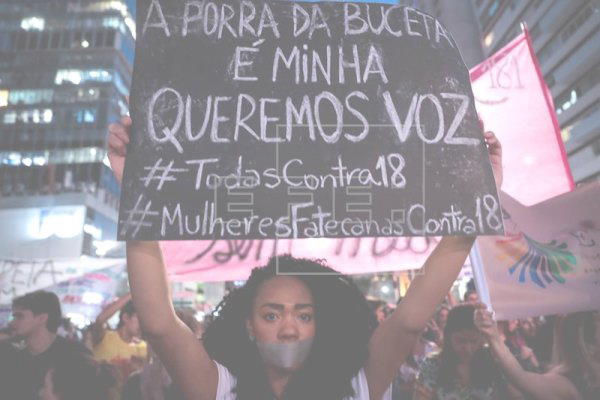 A PORRA DA BUCETA
É MINHA
QUEREMOS VOZ
#TodasContra18
#MulheresFatecanasContra18
EFE
181